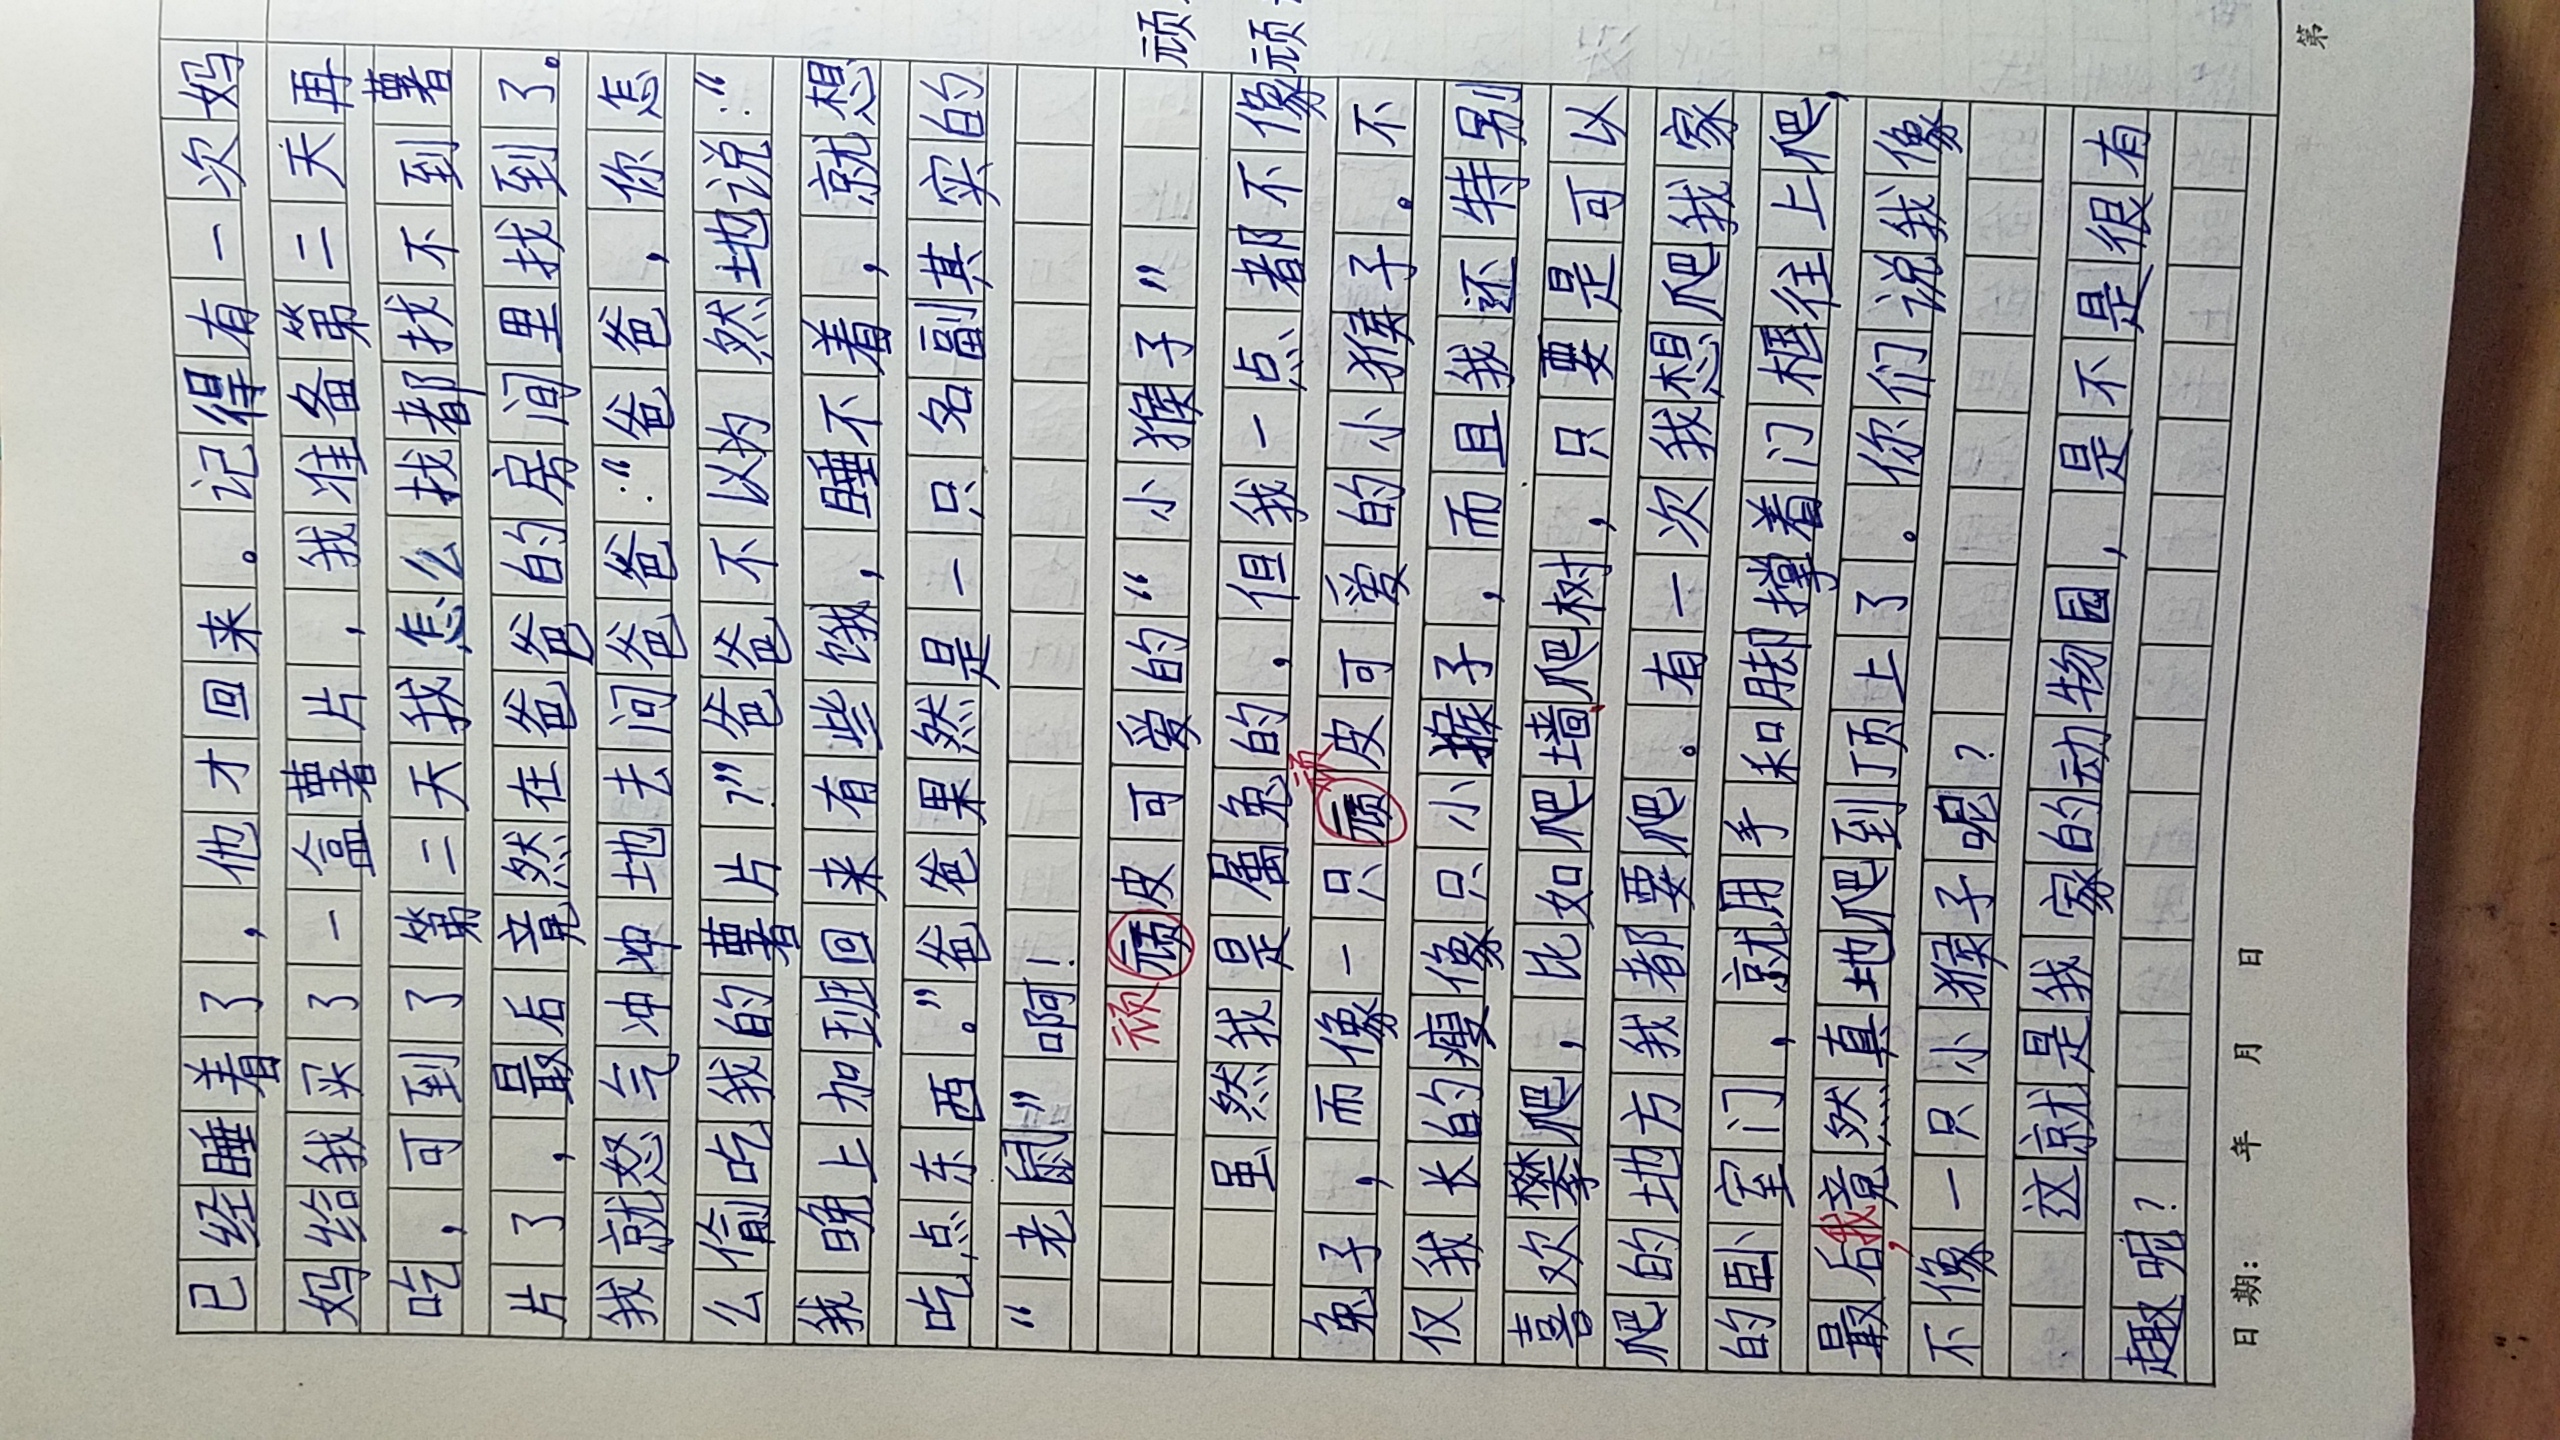 已经睡着了，他才回来。记得有一次妈
妈给我买了一盒薯片，我准备第二天再
吃，可到了第二天我怎么找都找不到薯
片了，最后竟然在爸爸的房间里找到了。
我就怒气冲冲地去问爸爸：“爸爸，你怎
么偷吃我的薯片？”爸爸不以为然地说：“
我晚上加班回来有些饿，睡不着，就想
吃点东西。”爸爸果然是一只名副其实的
“老鼠”啊！
顽
顽皮可爱的“小猴子”
虽然我是属兔的，但我一点都不像
兔子，而像一只顽皮可爱的小猴子。不
顽
仅我长的瘦像只小猴子，而且我还特别
喜欢攀爬，比如爬墙爬树，只要是可以
爬的地方我都要爬。有一次我想爬我家
的卧室门，就用手和脚撑着门框往上爬，
最后，我竟然真地爬到顶上了。你们说我像
不像一只小猴子呢？
这就是我家的动物园，是不是很有
趣呢？
日期： 年 月 日
第
顽
顽